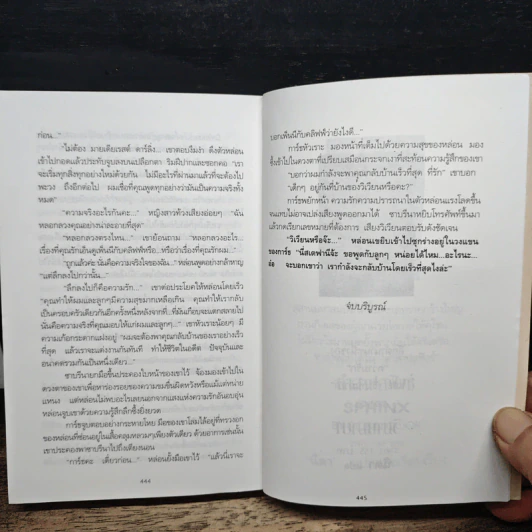 ก่อน..."
"ไม่ต้อง มายเดียเรสท์ ดาร์ลิ่ง... เขาตอบงึมงำ ดึงตัวหล่อน
เข้าไปกอดแล้วประทับจูบลงบนเปลือกตา ริมฝีปากและซอกคอ "เรา
จะเริ่มทุกสิ่งทุกอย่างใหม่ด้วยกัน ไม่มีอะไรที่ผ่านมาแล้วที่จะต้องไป
พะวง ถึงอีกต่อไป ผมเชื่อที่คุณพูดทุกอย่างว่ามันเป็นความจริงทั้ง
หมด"
"ความจริงอะไรกันคะ..." หญิงสาวท้วงเสียงอ่อยๆ "ฉัน
หลอกลวงคุณอย่างน่าละอายที่สุด"
"หลอกลวงตรงไหน..." เขาย้อนถาม "หลอกลวงอะไร...
เรื่องที่คุณรักเย็นคูเพ็นนีกับคลิฟฟ์หรือ... หรือว่าเรื่องที่คุณรักผม..."
"ถูกแล้วค่ะ นั่นคือความจริงใจของฉัน..." หล่อนพูดอย่างกล้าหาญ
"แต่ลึกลงไปกว่านั้น..."
"ลึกลงไปก็คือความรัก..." เขาต่อประโยคให้หล่อนโดยเร็ว
"คุณทำให้ผมและลูกๆมีความสุขมากเหลือเกิน คุณทำให้เรากลับ
เป็นครอบครัวเดียวกันอีกครั้งหนึ่งหลังจากที่...ที่มันเกือบจะแตกสลายไป
นั่นคือความจริงที่คุณมอบให้แก่ผมและลูกๆ..." เขาหัวเราะน้อยๆ มี
ความเก้อกระดากแฝงอยู่ "ผมจะต้องพาคุณกลับบ้านของเราอย่างเร็ว
ที่สุด แล้วเราจะแต่งงานกันทันที ทำให้ชีวิตในอดีต ปัจจุบันและ
อนาคตรวมกันเป็นหนึ่งเดียว..."
ซาบรีนายกมือขึ้นประคองใบหน้าของเขาไว้ จ้องมองเข้าไปใน
ดวงตาของเขาเพื่อหาร่องรอยของความขมขื่นผิดหวังหรือแม้แต่หน่าย
แหนง แต่หล่อนไม่พบอะไรเลยนอกจากแสงแห่งความรักอันอบอุ่น
หล่อนจูบเขาด้วยความรู้สึกลึกซึ้งยิ่งยวด
การ์ธจูบตอบอย่างกระหายใหม่ มือของเขาโลมไล้อยู่ที่ทรวงอก
ของหล่อนที่ซ่อนอยู่ในเสื้อคลุมหลวมๆเพียงตัวเดียว ด้วยอาการเช่นนั้น
เขาประคองพาซาบรีนาไปถึงเตียงนอน
"การ์ธคะ เดี๋ยวก่อน..." หล่อนยั้งมือเขาไว้ "แล้วนี่เราจะ
444
บอกเพ็นนีกับคลิฟฟ์ว่ายังไงดี..."
การ์ธหัวเราะ มองหน้าที่เต็มไปด้วยความสุขของหล่อน มอง
ซึ้งเข้าไปในดวงตาที่เปรียบเสมือนกระจกเงาที่สะท้อนความรู้สึกของเขา
"บอกว่าผมกำลังจะพาคุณกลับบ้านเร็วที่สุด ที่รัก" เขาบอก
"เด็กๆ อยู่กันที่บ้านของวิเวียนหรือคะ?"
การ์ธพยักหน้า ความรักความปรารถนาในตัวหล่อนแรงโลดขึ้น
จนแทบไม่อาจเปล่งเสียงพูดออกมาได้ ซาบรีนาหยิบโทรศัพท์ขึ้นมา
แล้วกดเรียกเลขหมายที่ต้องการ เสียงวิเวียนตอบรับดังชัดเจน
"วิเวียนหรือจ๊ะ..." หล่อนเขยิบเข้าไปซุกร่างอยู่ในวงแขน
ของการ์ธ "นี่สเตฟานีจ้ะ ขอพูดกับลูกๆ หน่อยได้ไหม...อะไรนะ...
อ๋อ จะบอกเขาว่า เรากำลังจะกลับบ้านโดยเร็วที่สุดไงล่ะ"
จบบริบูรณ์
445